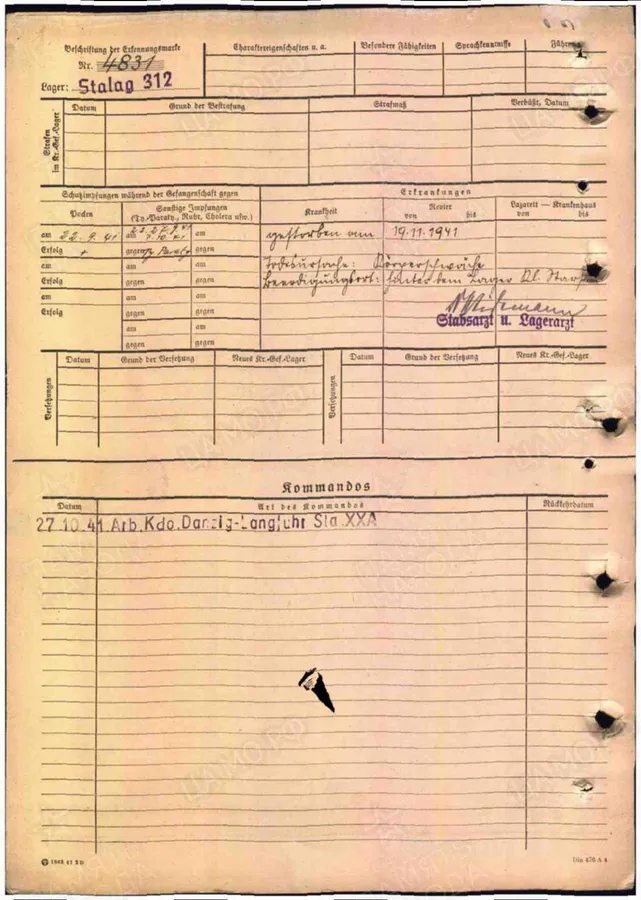 Beschriftung der Erkennungsmarke
Nr. 4831
Lager: Stalag 312
Charaktereigenschaften u. a.
Besondere Fähigkeiten
Sprachkenntnisse
Führung
Strafen im Kr.-Gef.-Lager
Datum
Grund der Bestrafung
Strafmaß
Verbüßt, Datum
Schutzimpfungen während der Gefangenschaft gegen
Erkrankungen
Pocken
Sonstige Impfungen
(Ty.-Paraty., Ruhr, Cholera usw.)
Krankheit
Revier
von bis
Lazarett — Krankenhaus
von bis
am 22.9.41 am am
gestorben am 19.11.1941
Erfolg + gegen Ty Paraty gegen
am am am
Todesursache: Körperschwäche
Erfolg gegen gegen
Beerdigungsort: hinter dem Lager Kl.
am am am
Erfolg gegen gegen
Stabsarzt u. Lagerarzt
am am
gegen gegen
Versetzungen
Datum
Grund der Versetzung
Neues Kr.-Gef.-Lager
Versetzungen
Datum
Grund der Versetzung
Neues Kr.-Gef.-Lager
Kommandos
Datum
Art des Kommandos
Rückkehrdatum
27.10.41. Arb. Kdo. Danzig-Langfuhr Sta. XXA
Din 476 A 4
ЦАМО РФ
ПАМЯТЬ НАРОДА